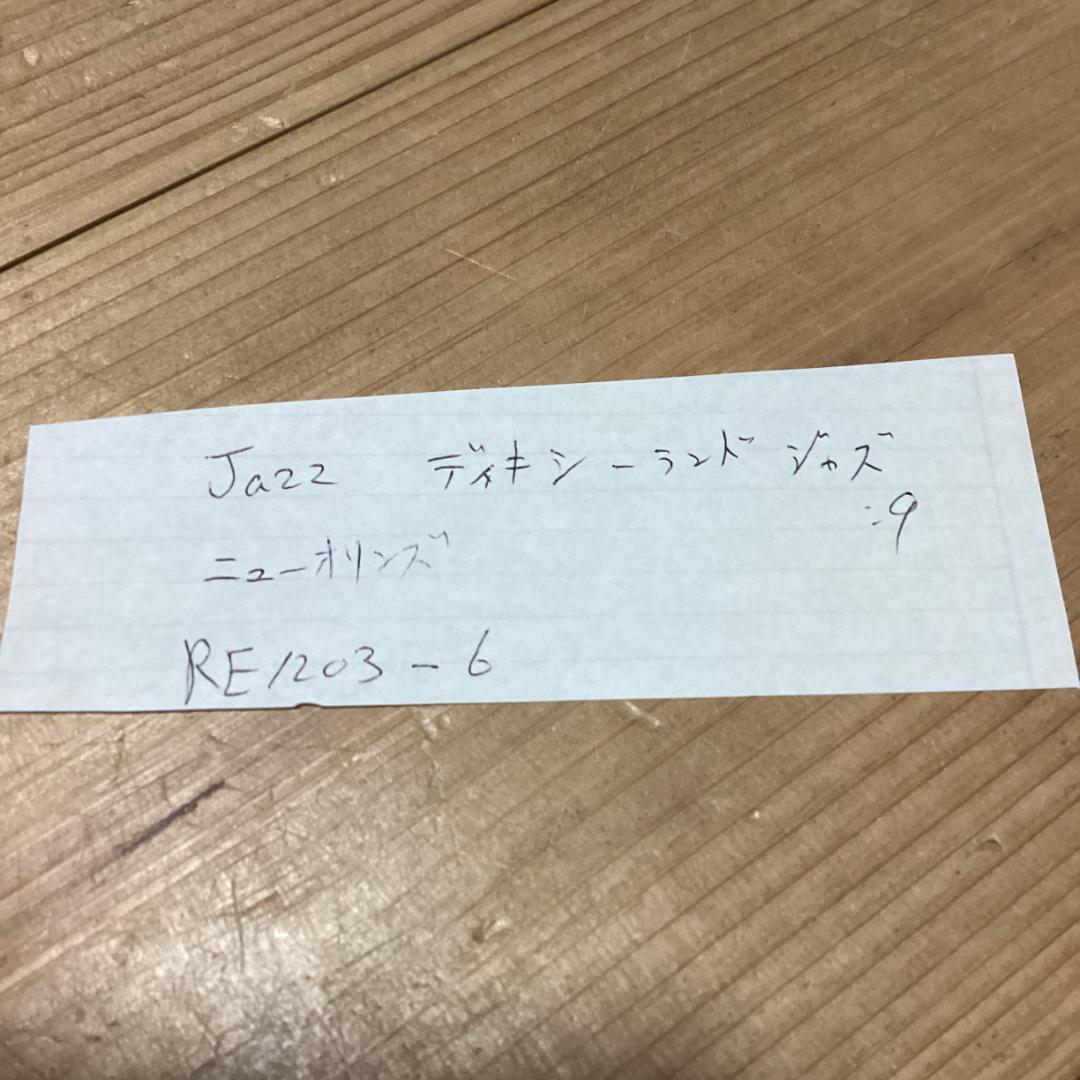 Jazz ディキシーランドジャズ
:9
ニューオリンズ
RE1203-6